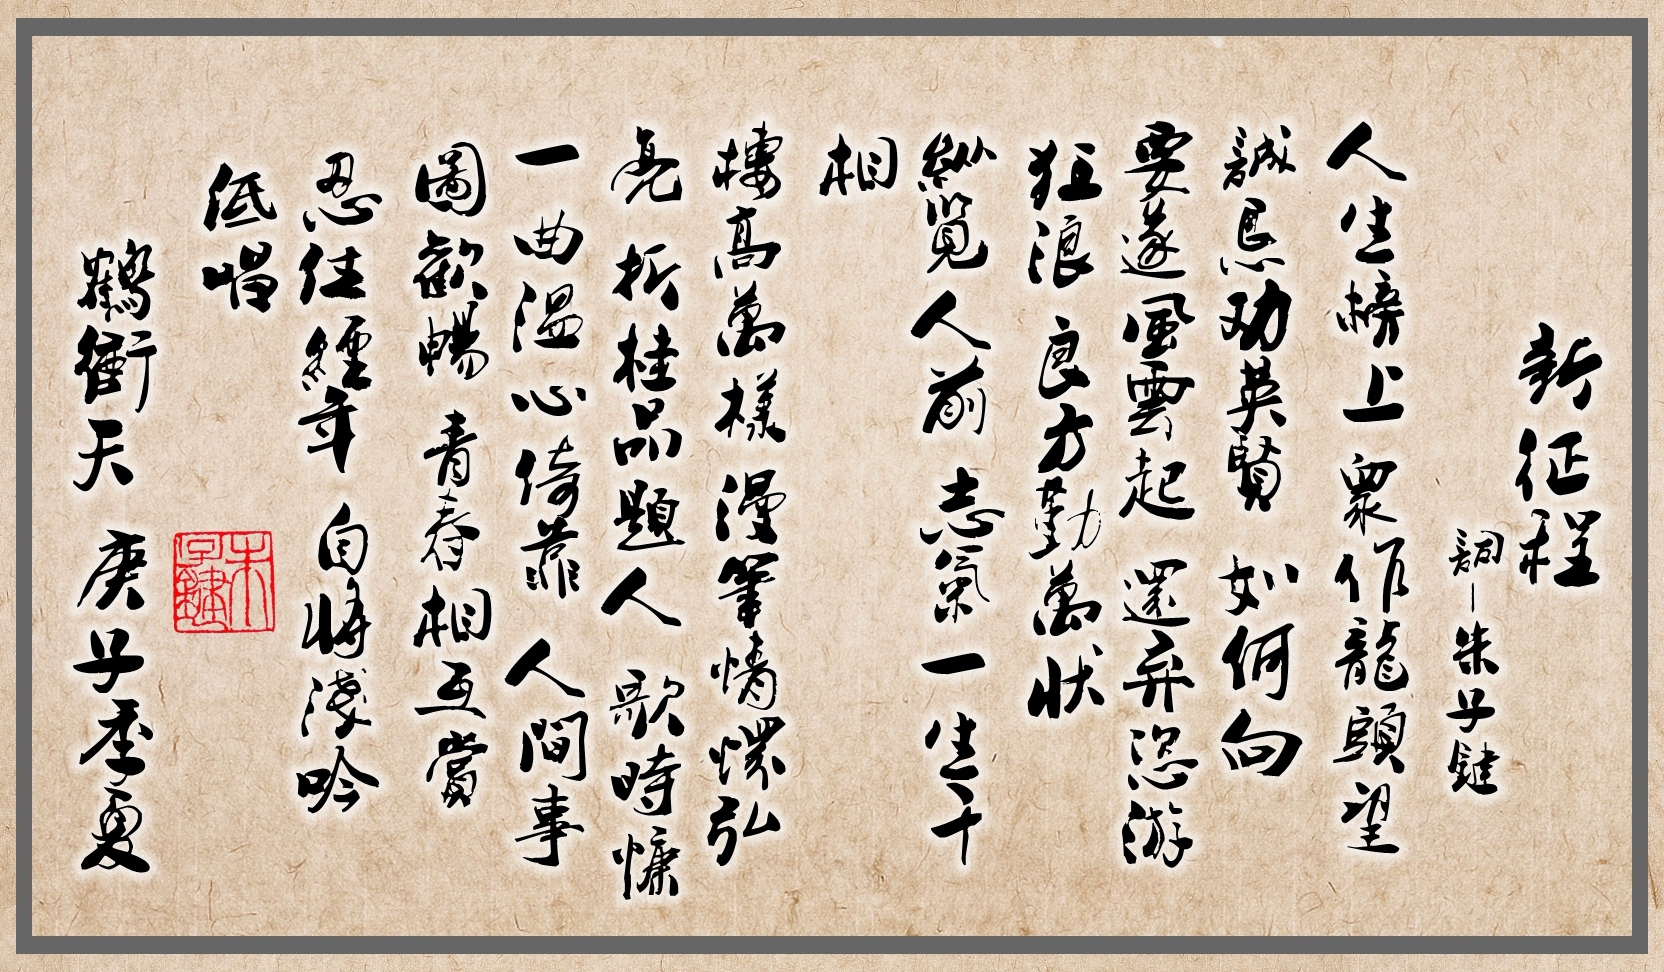 新征程
詞一朱子鍵
人生榜上 眾作龍頭望
誠恳功英賢 如何向
要遂風雲起 還弃恣游
狂浪 良方勤萬状
縱览人前 志氣一生千
相
樓高萬樣 漫筆情懷弘
亮 折桂品題人 歌時慷
一曲溫心倚靠 人間事
圖歡暢 青春相互賞
忍住經年 自将淺吟
低唱
鶴衝天 庚子季夏
朱子鍵